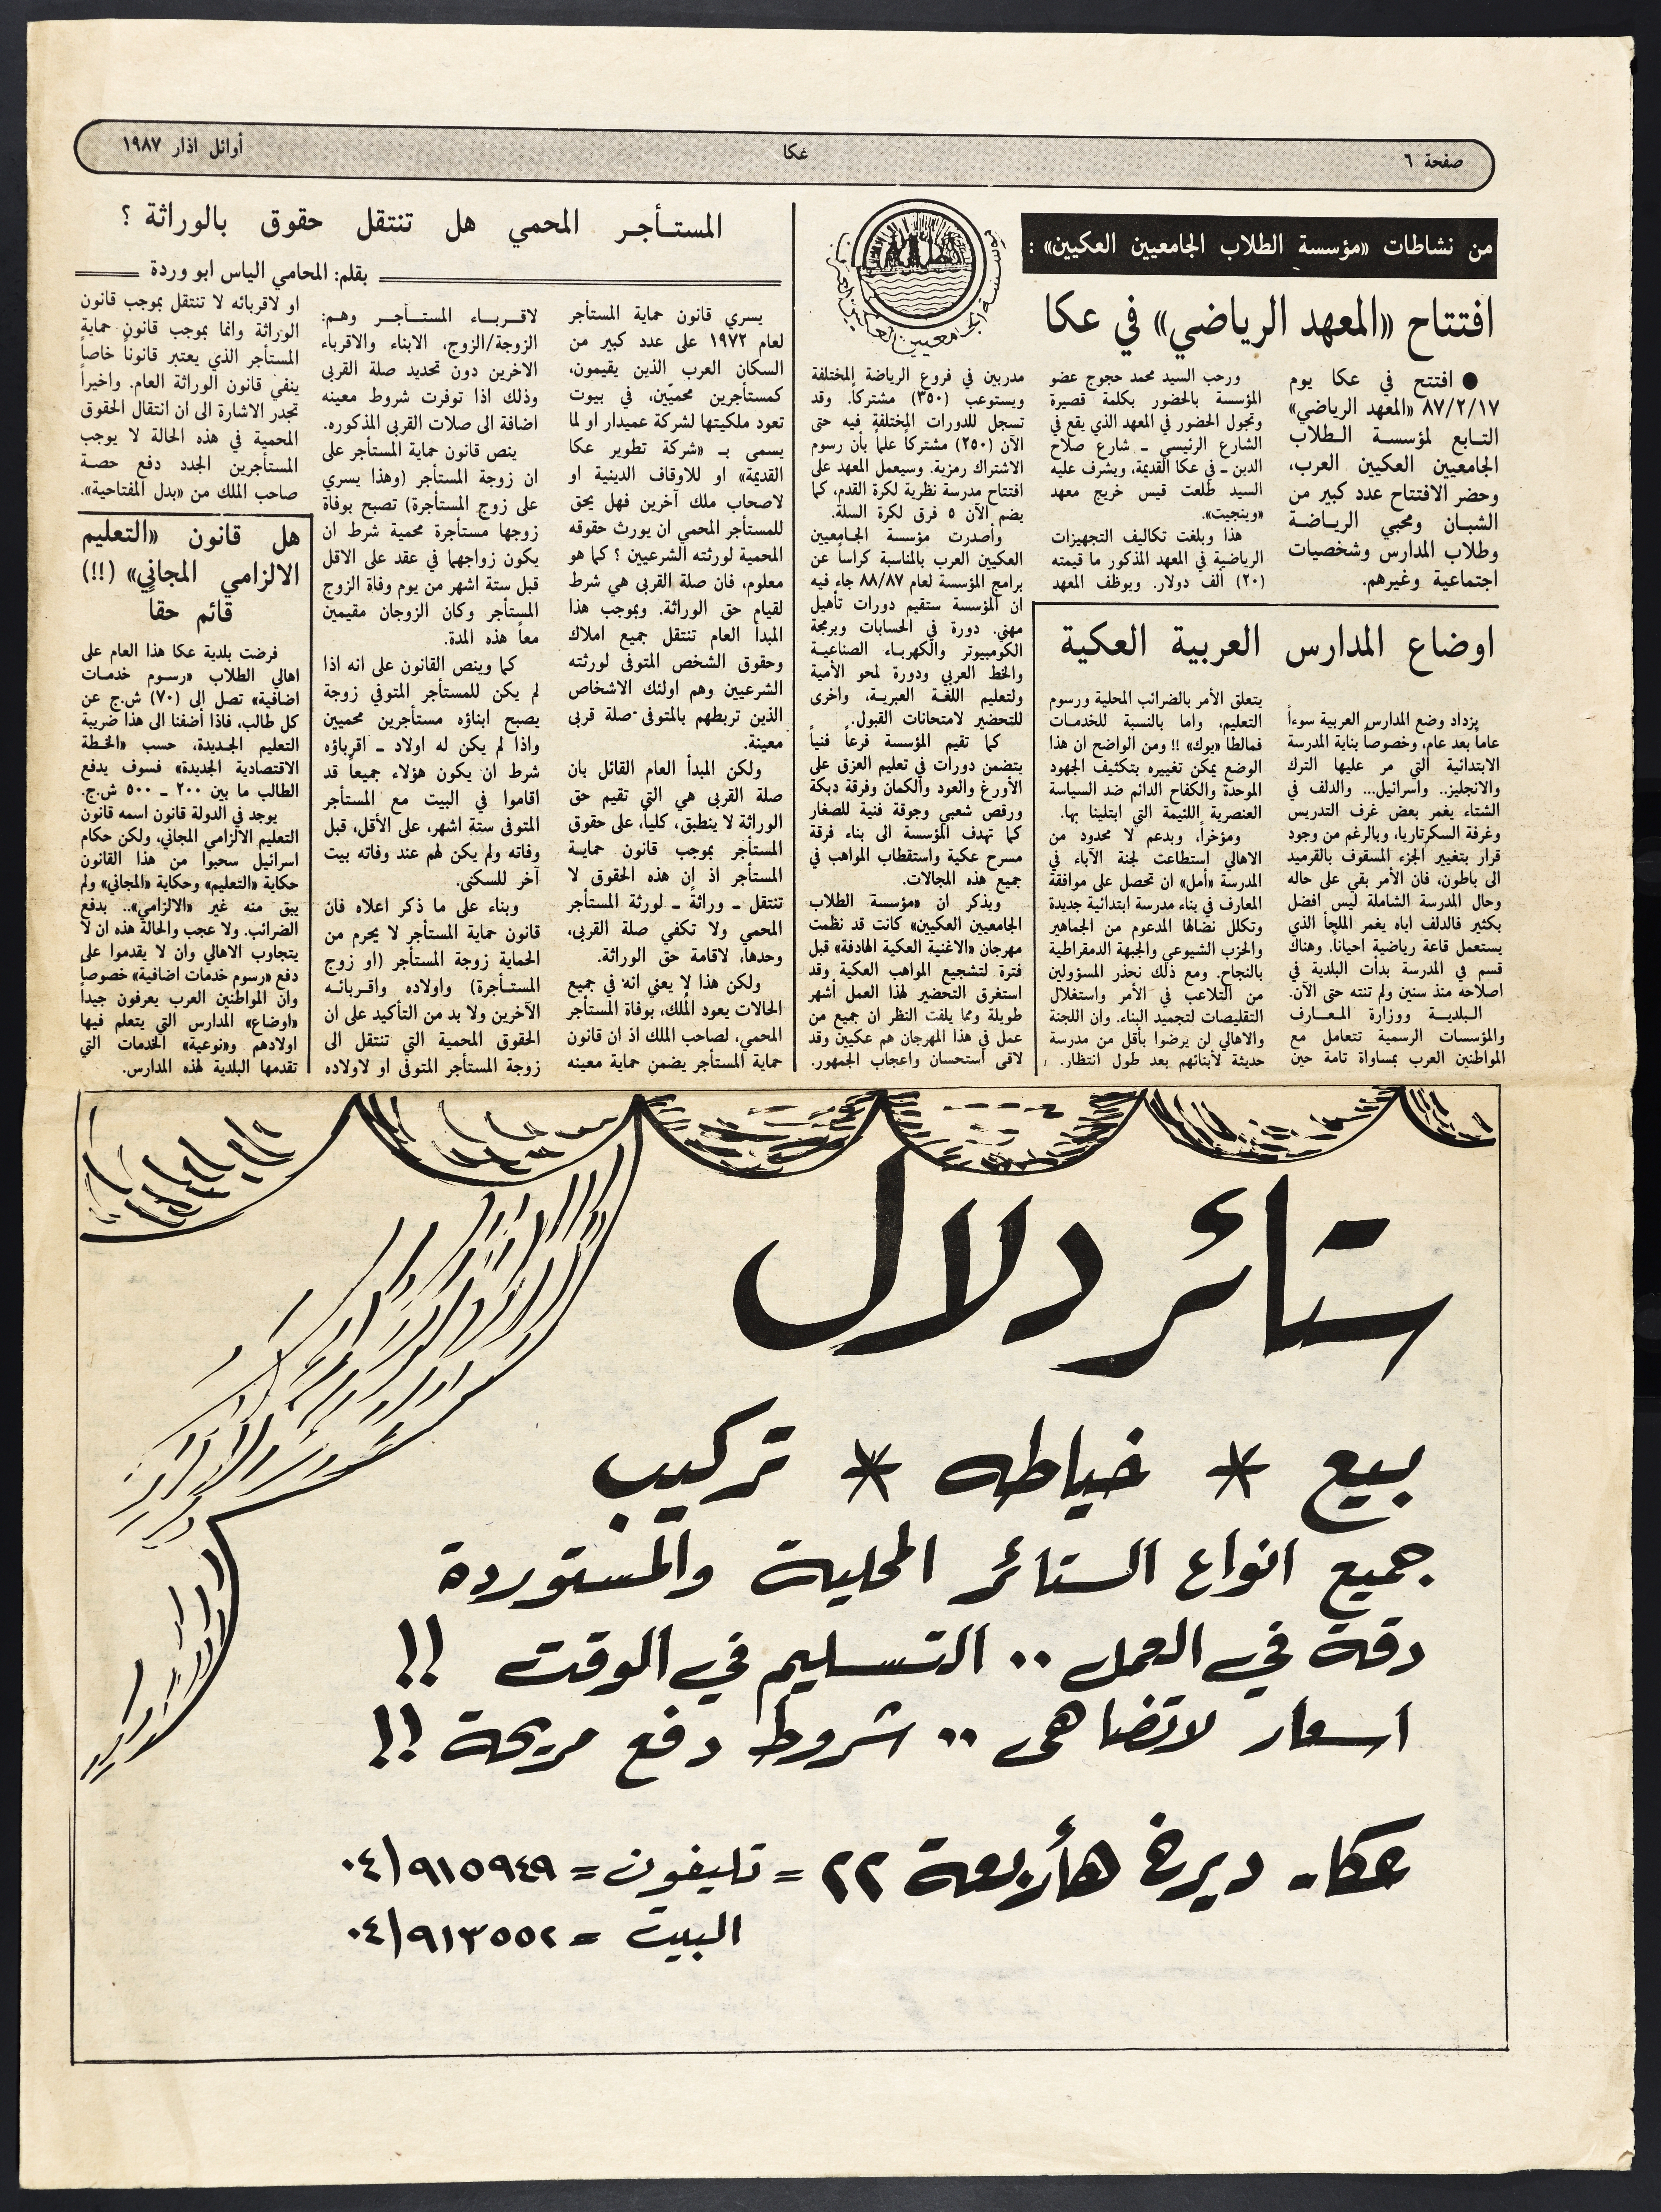 صفحة ٦
عكا
أوائل اذار ١٩٨٧
من نشاطات «مؤسسة الطلاب الجامعيين العكيين» :
افتتاح «المعهد الرياضي» في عكا
● افتتح في عكا يوم
٨٧/٢/١٧ «المعهد الرياضي»
التـابع لمؤسسـة الـطلاب
الجامعيين العكيين العرب،
وحضر الافتتاح عدد كبير من
الشبـان ومحبي الريـاضـة
وطلاب المدارس وشخصيات
اجتماعية وغيرهم.
ورحب السيد محمد حجوج عضو
المؤسسة بالحضور بكلمة قصيرة
وتجول الحضور في المعهد الذي يقع في
الشارع الرئيسي ـ شارع صلاح
الدين ـ في عكا القديمة، ويشرف عليه
السيد طلعت قيس خريج معهد
«وينجيت».
هذا وبلغت تكاليف التجهيزات
الرياضية في المعهد المذكور ما قيمته
(٢٠) ألف دولار. ويوظف المعهد
مدربين في فروع الرياضة المختلفة
ويستوعب (٣٥٠) مشتركاً. وقد
تسجل للدورات المختلفة فيه حتى
الآن (٢٥٠) مشتركاً علماً بأن رسوم
الاشتراك رمزية. وسيعمل المعهد على
افتتاح مدرسة نظرية لكرة القدم، كما
يضم الآن ٥ فرق لكرة السلة.
وأصدرت مؤسسة الجـامعيين
العكيين العرب بالمناسبة كراساً عن
برامج المؤسسة لعام ٨٨/٨٧ جاء فيه
ان المؤسسة ستقيم دورات تأهيل
مهني. دورة في الحسابات وبرمجة
الكومبيوتر والكهربـاء الصناعيـة
والخط العربي ودورة لمحو الأمية
ولتعليم اللغـة العبريـة، واخرى
للتحضير لامتحانات القبول.
كما تقيم المؤسسة فرعاً فنياً
يتضمن دورات في تعليم العزق على
الأورغ والعود والكمان وفرقة دبكة
ورقص شعبي وجوقة فنية للصغار
كما تهدف المؤسسة الى بناء فرقة
مسرح عكية واستقطاب المواهب في
جميع هذه المجالات.
ويذكر ان «مؤسسة الطلاب
الجامعيين العكيين» كانت قد نظمت
مهرجان «الاغنية العكية الهادفة» قبل
فترة لتشجيع المواهب العكية وقد
استغرق التحضير لهذا العمل أشهر
طويلة ومما يلفت النظر ان جميع من
عمل في هذا المهرجان هم عكيين وقد
لاقى استحسان واعجاب الجمهور.
اوضاع المدارس العربية العكية
يزداد وضع المدارس العربية سوءاً
عاماً بعد عام، وخصوصاً بناية المدرسة
الابتدائية التي مر عليها الترك
والانجليز.. واسرائيل... والدلف في
الشتاء يغمر بعض غرف التدريس
وغرفة السكرتاريا، وبالرغم من وجود
قرار بتغيير الجزء المسقوف بالقرميد
الى باطون، فان الأمر بقي على حاله
وحال المدرسة الشاملة ليس افضل
بكثير فالدلف اياه يغمر الملجأ الذي
يستعمل قاعة رياضية احياناً. وهناك
قسم في المدرسة بدأت البلدية في
اصلاحه منذ سنين ولم تنته حتى الآن.
البلديـة ووزارة المـعـارف
والمؤسسات الرسمية تتعامل مع
المواطنين العرب بمساواة تامة حين
يتعلق الأمر بالضرائب المحلية ورسوم
التعليم، واما بالنسبة للخدمـات
فمالطا «يوك» !! ومن الواضح ان هذا
الوضع يمكن تغييره بتكثيف الجهود
الموحدة والكفاح الدائم ضد السياسة
العنصرية اللئيمة التي ابتلينا بها.
ومؤخراً، وبدعم لا محدود من
الاهالي استطاعت لجنة الآباء في
المدرسة «أمل» ان تحصل على موافقة
المعارف في بناء مدرسة ابتدائية جديدة
وتكلل نضالها المدعوم من الجماهير
والحزب الشيوعي والجبهة الدمقراطية
بالنجاح. ومع ذلك نحذر المسؤولين
من التلاعب في الأمر واستغلال
التقليصات لتجميد البناء، وان اللجنة
والاهالي لن يرضوا بأقل من مدرسة
حديثة لأبنائهم بعد طول انتظار.
المستـأجـر المحمي هل تنتقل حقوق بالوراثة ؟
بقلم: المحامي الياس ابو وردة
يسري قانون حماية المستأجر
لعام ١٩٧٢ على عدد كبير من
السكان العرب الذين يقيمون،
كمستأجرين محميّين، في بيوت
تعود ملكيتها لشركة عميدار او لما
يسمى بـ «شركة تطوير عكا
القديمة» او للاوقاف الدينية او
لاصحاب ملك آخرين فهل يحق
للمستأجر المحمي ان يورث حقوقه
المحمية لورثته الشرعيين ؟ كما هو
معلوم، فان صلة القربى هي شرط
لقيام حق الوراثة. وبموجب هذا
المبدأ العام تنتقل جميع املاك
وحقوق الشخص المتوفى لورثته
الشرعيين وهم اولئك الاشخاص
الذين تربطهم بالمتوفى صلة قربى
معينة.
ولكن المبدأ العام القائل بان
صلة القربى هي التي تقيم حق
الوراثة لا ينطبق، كلياً، على حقوق
المستأجر بموجب قانون حمايـة
المستأجر اذ ان هذه الحقوق لا
تنتقل ـ وراثةً ـ لورثة المستأجر
المحمي ولا تكفي صلة القربى،
وحدها، لاقامة حق الوراثة.
ولكن هذا لا يعني انه في جميع
الحالات يعود المُلك، بوفاة المستأجر
المحمي، لصاحب الملك اذ ان قانون
حماية المستأجر يضمن حماية معينه
لاقـربـاء المستـأجـر وهـم:
الزوجة/الزوج، الابناء والاقرباء
الاخرين دون تحديد صلة القربى
وذلك اذا توفرت شروط معينه
اضافة الى صلات القربى المذكوره.
ينص قانون حماية المستأجر على
ان زوجة المستأجر (وهذا يسري
على زوج المستأجرة) تصبح بوفاة
زوجها مستأجرة محمية شرط ان
يكون زواجهما في عقد على الاقل
قبل ستة اشهر من يوم وفاة الزوج
المستأجر وكان الزوجان مقيمين
معاً هذه المدة.
كما وينص القانون على انه اذا
لم يكن للمستأجر المتوفي زوجة
يصبح ابناؤه مستأجرين محميين
واذا لم يكن له اولاد ـ اقرباؤه
شرط ان يكون هؤلاء جميعاً قد
اقاموا في البيت مع المستأجر
المتوفى ستة اشهر، على الأقل، قبل
وفاته ولم يكن لهم عند وفاته بيت
آخر للسكنى.
وبناء على ما ذكر اعلاه فان
قانون حماية المستأجر لا يحرم من
الحماية زوجة المستأجر (او زوج
المستـأجرة) واولاده واقـربـائـه
الآخرين ولا بد من التأكيد على ان
الحقوق المحمية التي تنتقل الى
زوجة المستأجر المتوفى او لاولاده
او لاقربائه لا تنتقل بموجب قانون
الوراثة وانما بموجب قانون حماية
المستأجر الذي يعتبر قانوناً خاصاً
ينفي قانون الوراثة العام. واخيراً
تجدر الاشارة الى ان انتقال الحقوق
المحمية في هذه الحالة لا يوجب
المستأجرين الجدد دفع حصـة
صاحب الملك من «بدل المفتاحية».
هل قانون «التعليم
الالزامي المجاني» (!!)
قائم حقاً
فرضت بلدية عكا هذا العام على
اهالي الطلاب «رسـوم خدمـات
اضافية» تصل الى (٧٠) ش.ج عن
كل طالب، فاذا أضفنا الى هذا ضريبة
التعليم الجـديدة، حسب «الخـطة
الاقتصادية الجديدة» فسوف يدفع
الطالب ما بين ٢٠٠ ـ ٥٠٠ ش.ج.
يوجد في الدولة قانون اسمه قانون
التعليم الالزامي المجاني، ولكن حكام
اسرائيل سحبوا من هذا القانون
حكاية «التعليم» وحكاية «المجاني» ولم
يبق منه غير «الالزامي».. بدفع
الضرائب. ولا عجب والحالة هذه ان لا
يتجاوب الاهالي وان لا يقدموا على
دفع «رسوم خدمات اضافية» خصوصاً
وان المواطنين العرب يعرفون جيداً
«اوضاع» المدارس التي يتعلم فيها
اولادهم و«نوعية» الخدمات التي
تقدمها البلدية لهذه المدارس.
ستائر دلال
بيع * خياطه * تركيب
جميع انواع الستائر المحلية والمستوردة
دقة في العمل .. التسليم في الوقت !!
اسعار لاتضاهى .. شروط دفع مريحة !!
عكا - ديرخ هأربعة ٢٢ = تليفون = ٠٤/٩١٥٩٤٩
البيت = ٠٤/٩١٣٥٥٢